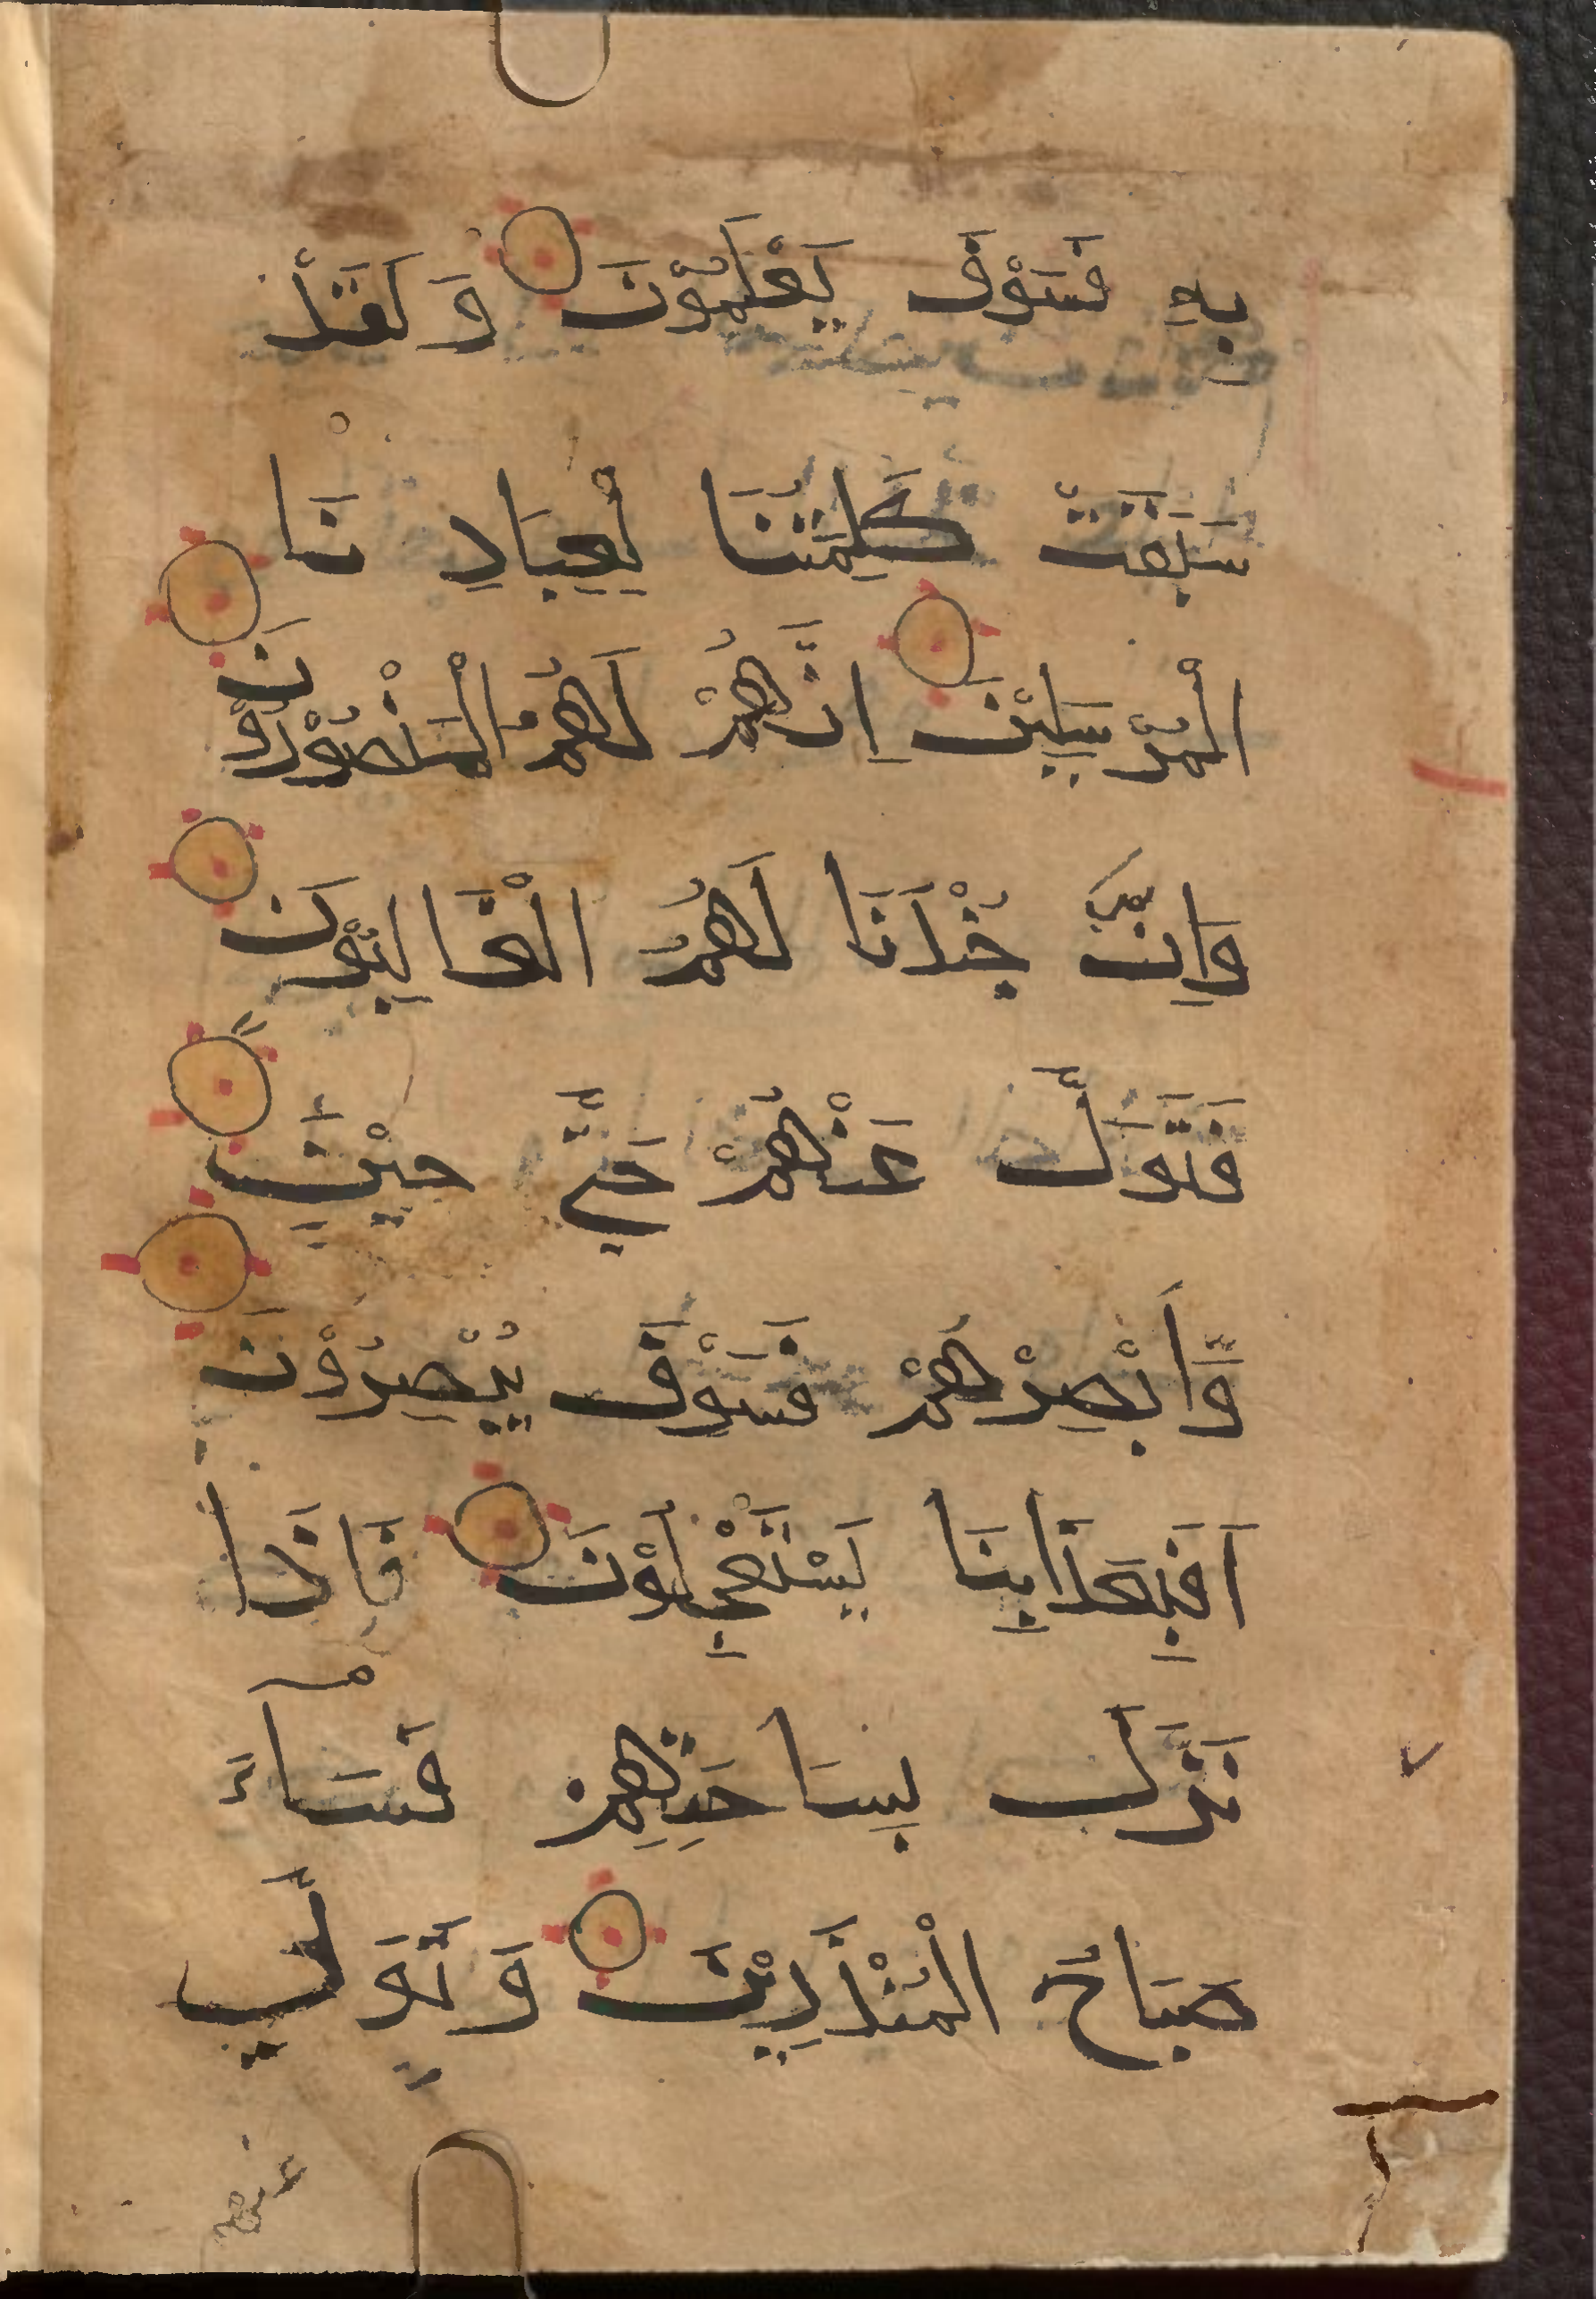 بِهِ فَسَوْفَ يَعْلَمُوْنَ وَ لَقَدْ
سَبَقَتْ كَلِمَتُنَا لِعِبَادِ نَا
الْمُرْسَلِيْنَ اِنَّهُمْ لَهُمُ الْمَنْصُوْرُوْنَ
وَاِنَّ جُنْدَنَا لَهُمُ الْغَالِبُوْنَ
فَتَوَلَّ عَنْهُمْ حَتّٰى حِيْنٍ
وَّاَبْصِرْهُمْ فَسَوْفَ يُبْصِرُوْنَ
اَفَبِعَذَابِنَا يَسْتَعْجِلُوْنَ فَاِذَا
نَزَلَ بِسَاحَتِهِمْ فَسَآءَ
صَبَاحُ الْمُنْذَرِيْنَ وَ تَوَلَّ
عنهم